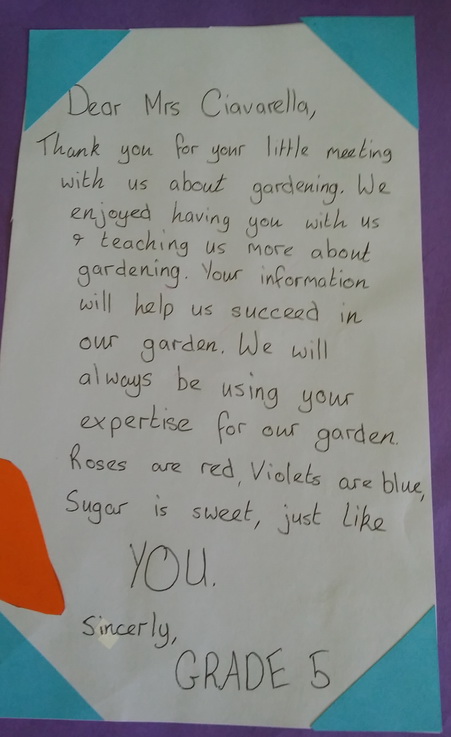 Dear Mrs Ciavarella,
Thank you for your little meeting
with us about gardening. We
enjoyed having you with us
& teaching us more about
gardening. Your information
will help us succeed in
our garden. We will
always be using your
expertise for our garden.
Roses are red, Violets are blue,
Sugar is sweet, just like
YOU.
Sincerly,
GRADE 5